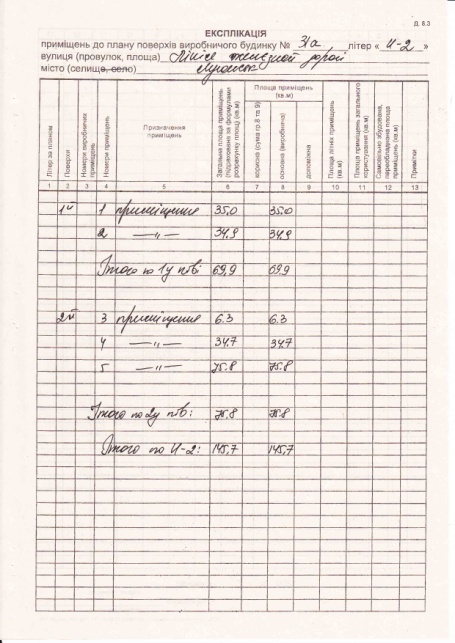 Д. 8.3
ЕКСПЛІКАЦІЯ
приміщень до плану поверхів виробничого будинку № 31а літер « И-2 »
вулиця (провулок, площа)
місто (селище, село)
Літер за планом
Поверхи
Номери виробничих приміщень
Номери приміщень
Призначення приміщень
Загальна площа приміщень (підрахована за формулами розрахунку площ) (кв.м)
Площа приміщень (кв.м)
корисна (сума гр.8 та 9)
основна (виробнича)
допоміжна
Площа літніх приміщень (кв.м)
Площа приміщень загального користування (кв.м)
Самовільно збудована, переобладнана площа приміщень (кв.м)
Примітки
1 2 3 4 5 6 7 8 9 10 11 12 13
1й 1 приміщення 35.0 35.0
2 —„— 34.9 34.9
Итого по 1у пов: 69,9 69.9
2й 3 приміщення 6.3 6.3
4 —„— 34.7 34.7
5 —„—
Итого по 2у пов: 75.8 75.8
Итого по И-2: 145,7 145,7